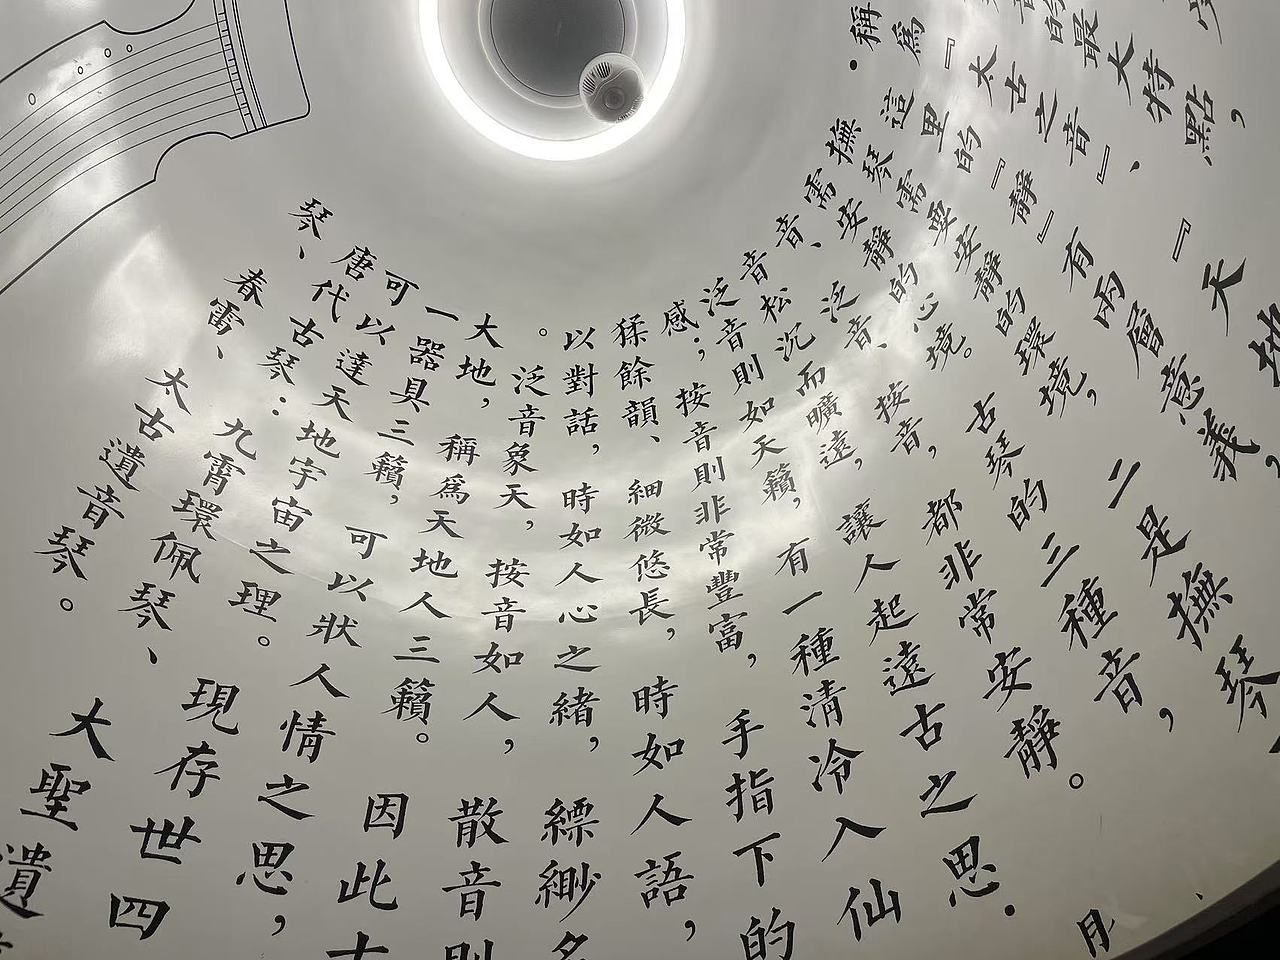 的最大特點,
稱為『太古之音』、『天地
這里的『靜』有兩層意義,
撫琴需要安靜的環境,二是撫琴
需安靜的心境。古琴的三種音,
音、泛音、按音,都非常安靜。
音松沉而曠遠,讓人起遠古之思.
泛音則如天籟,有一種清冷入仙
感;按音則非常豐富,手指下的
猱餘韻、細微悠長,時如人語,
以對話,時如人心之緒,縹緲多
。泛音象天,按音如人,散音則
大地,稱爲天地人三籟。因此古
一器具三籟,可以狀人情之思,
可以達天地宇宙之理。現存世四
唐代古琴:九霄環佩琴、大聖遺
琴、春雷、太古遺音琴。